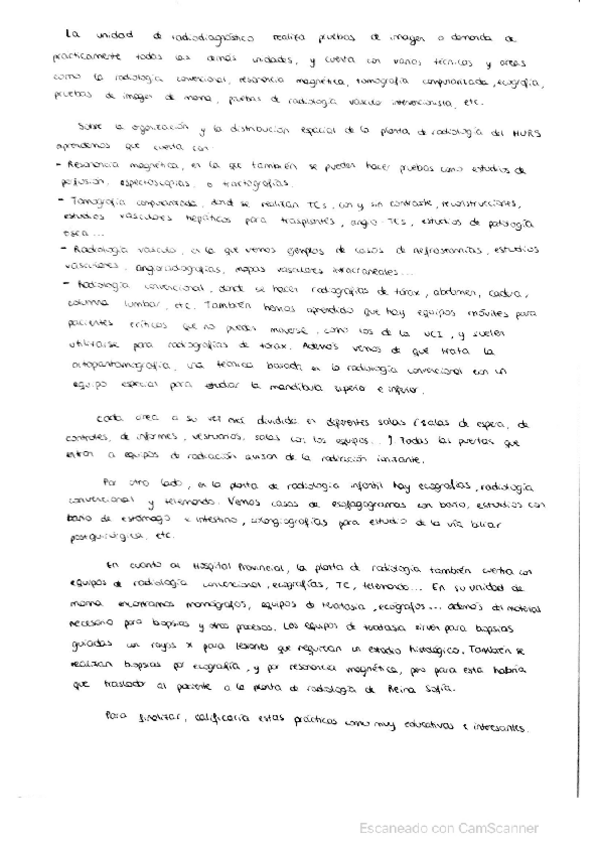 La unidad de radiodiagnóstico realiza pruebas de imagen a demanda de
prácticamente todas las demás unidades, y cuenta con varias técnicas y áreas
como la radiología convencional, resonancia magnética, tomografía computarizada, ecografía,
pruebas de imagen de mama, pruebas de radiología vasculo intervencionista, etc.
Sobre la organización y la distribución espacial de la planta de radiología del HURS
aprendemos que cuenta con:
- Resonancia magnética, en la que también se pueden hacer pruebas como estudios de
perfusion, espectroscopias, o tractografías.
- Tomografía computarizada, donde se realizan TCs, con y sin contraste, reconstrucciones,
estudios vasculares hepáticos para trasplantes, angio-TCs, estudios de patología
ósea...
- Radiología vasculo, en la que vemos ejemplos de casos de nefrostomías, estudios
vasculares, angioradiografías, mapas vasculares intracraneales...
- Radiología convencional, donde se hacen radiografías de tórax, abdomen, cadera,
columna lumbar, etc. También hemos aprendido que hay equipos móviles para
pacientes críticos que no pueden moverse, como los de la UCI, y suelen
utilizarse para radiografías de tórax. Además vemos de que trata la
ortopantomografía, una técnica basada en la radiología convencional con un
equipo especial para estudiar la mandíbula superior e inferior.
Cada area a su vez está dividida en diferentes salas (salas de espera, de
controles, de informes, vestuarios, salas con los equipos...). Todas las puertas que
entran a equipos de radiación avisan de la radiación ionizante.
Por otro lado, en la planta de radiología infantil hay ecografías, radiología
convencional y telemando. Vemos casos de esofagogramas con bario, estudios con
bario de estómago e intestino, colangiografías para estudio de la vía biliar
postquirúrgica, etc.
En cuanto al Hospital Provincial, la planta de radiología también cuenta con
equipos de radiología convencional, ecografías, TC, telemando... En su unidad de
mama encontramos mamógrafos, equipos de , ecógrafos... además del material
necesario para biopsias y otros procesos. Los equipos de sirven para biopsias
guiadas con rayos x para lesiones que requieran un estudio histológico. También se
realizan biopsias por ecografía, y por resonancia magnética, pero para esta habría
que trasladar al paciente a la planta de radiología de Reina Sofía.
Para finalizar, calificaría estas prácticas como muy educativas e interesantes.
Escaneado con CamScanner